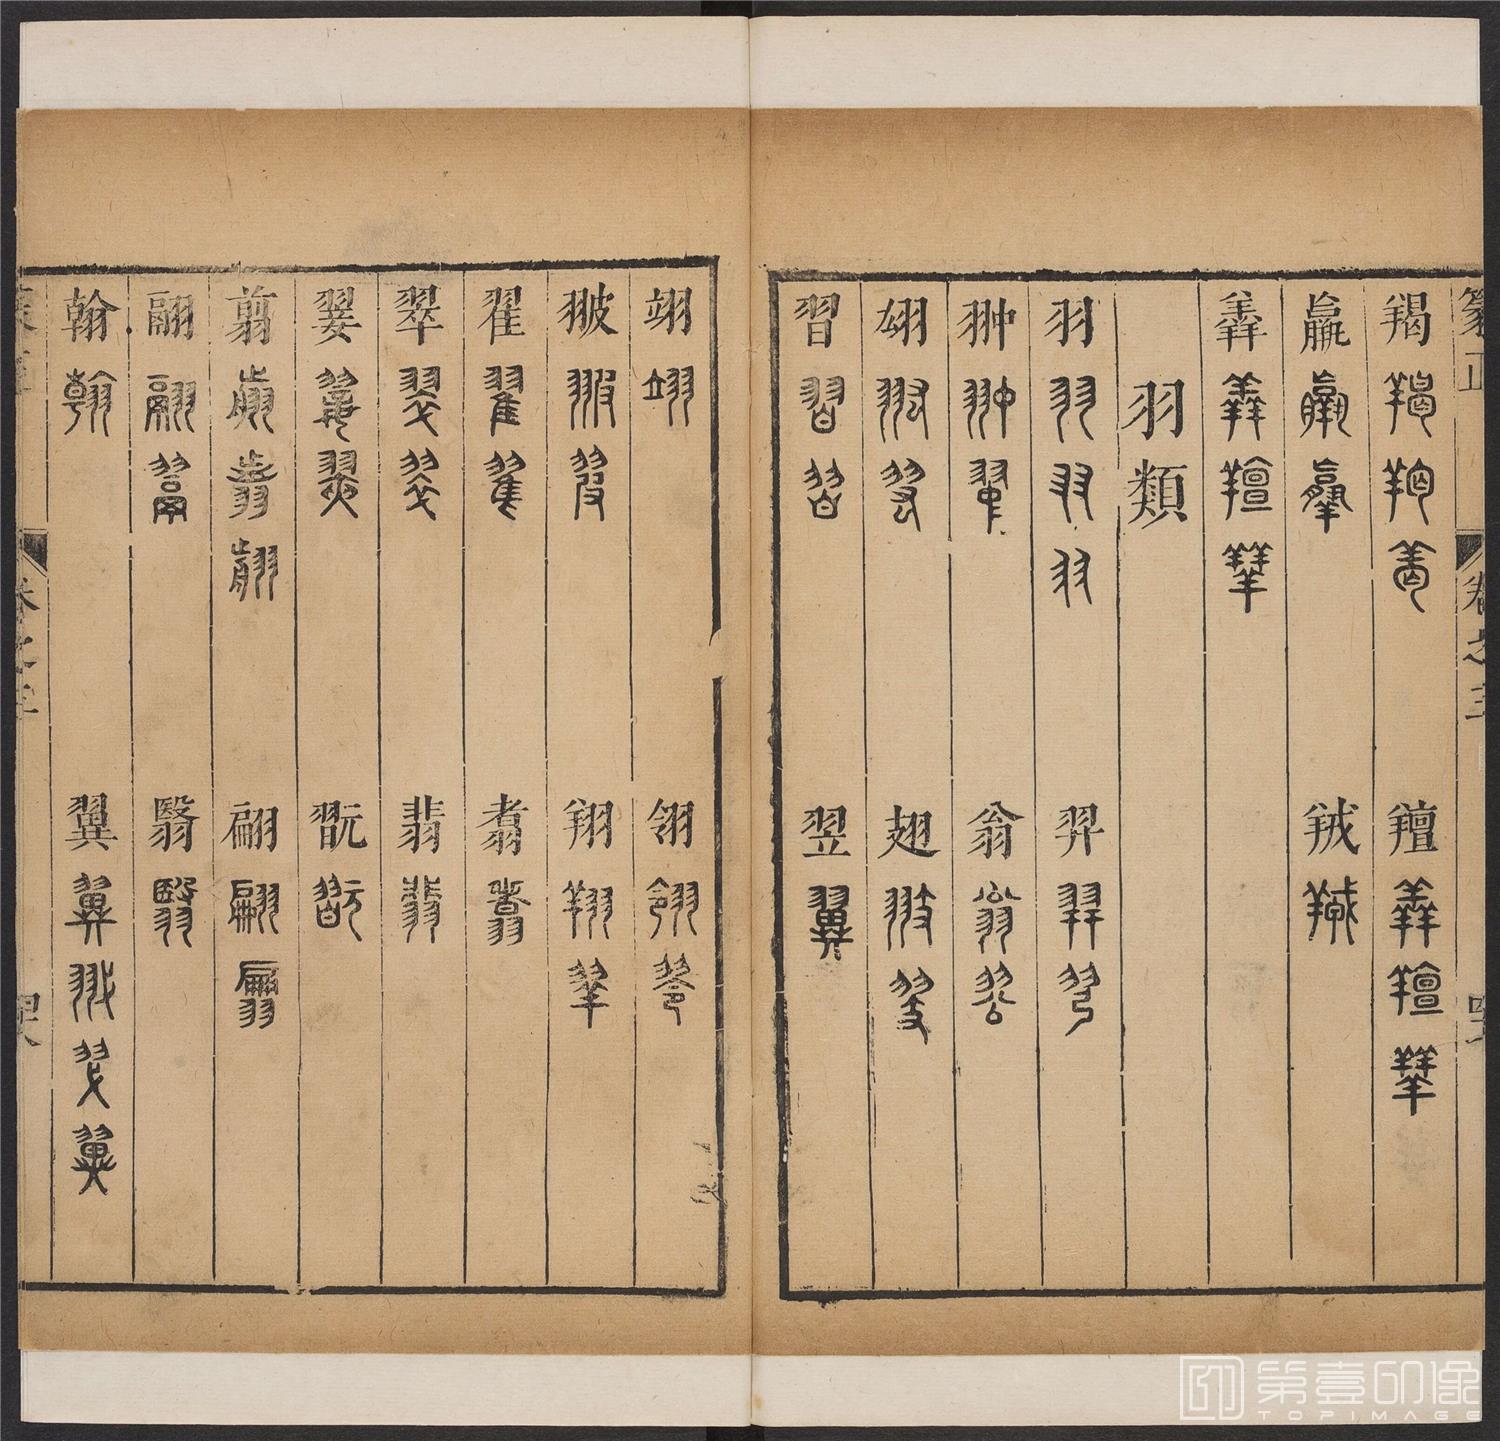 篆正 卷之三
羯羯羯羯 羶羶羶羶
羸羸羸 羢羢
羴羴羴羴
羽類
羽羽羽羽 羿羿羿
翀翀翀 翁翁翁
翃翃翃 翅翅翅
習習習 翌翌
翊翊 翎翎翎
翍翍翍 翔翔翔
翟翟翟 翥翥
翠翠翠 翡翡
翣翣翣 翫翫
翦翦翦翦 翩翩翩
翮翮翮 翳翳
翰翰 翼翼翼翼翼
卷之三 四八
第壹印像
TOPIMAGE